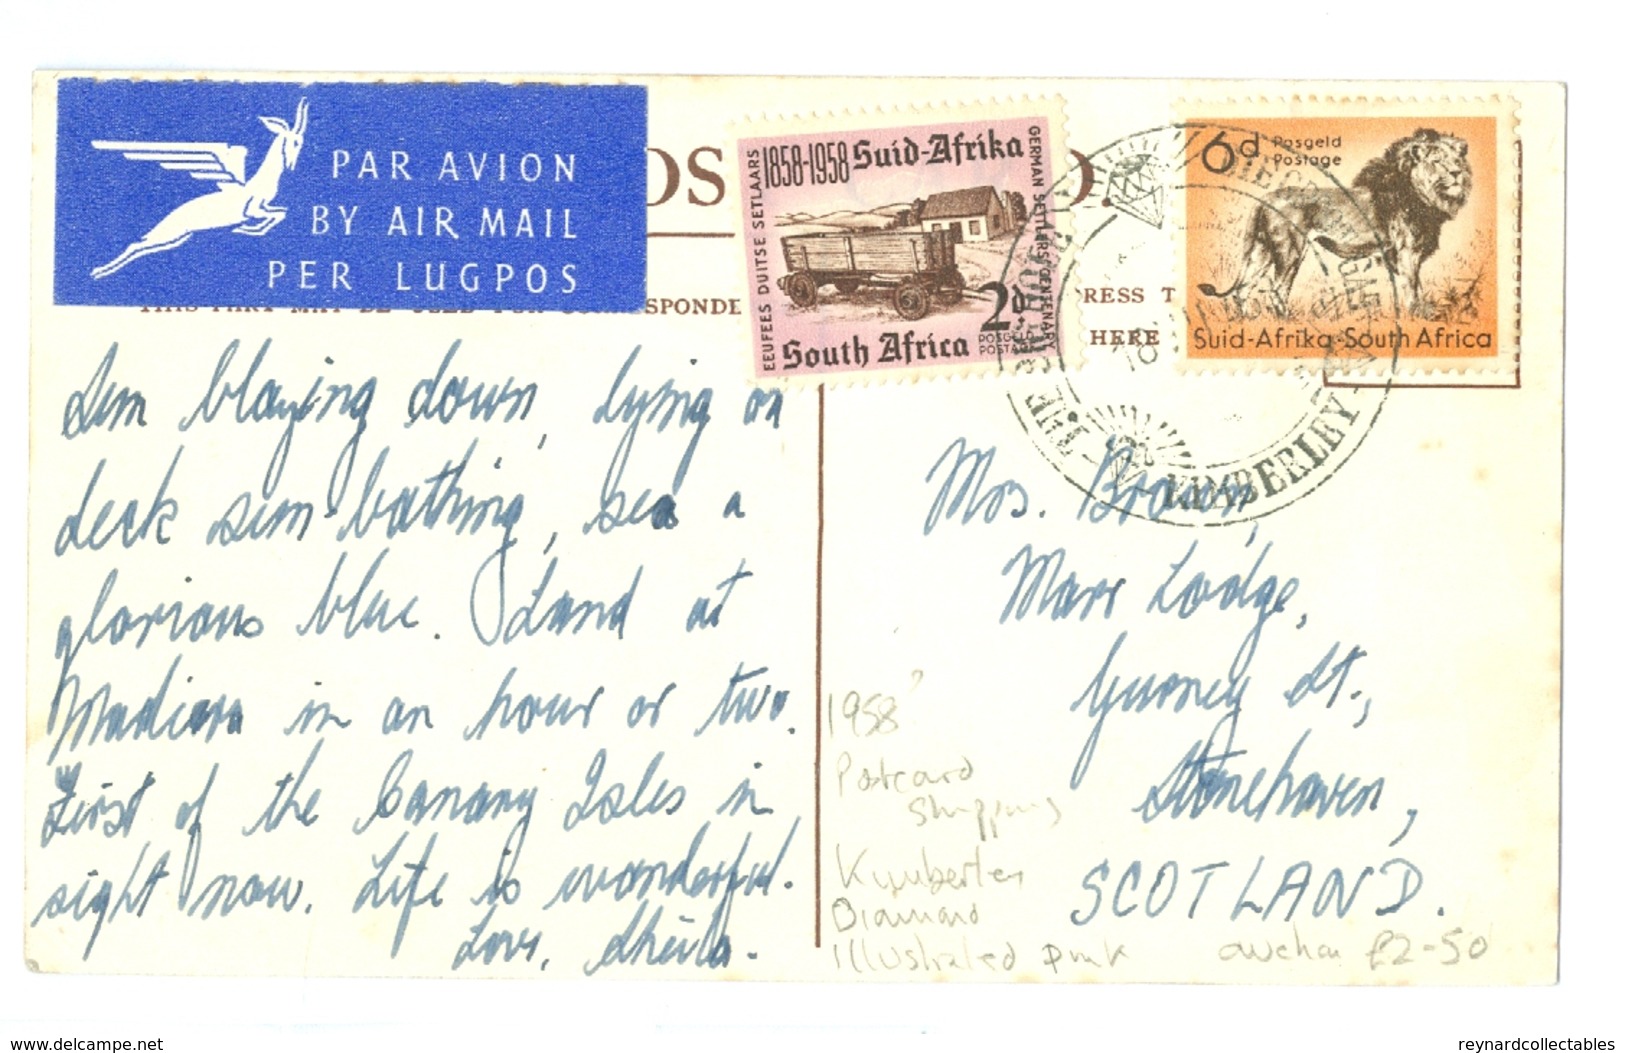 PAR AVION
BY AIR MAIL
PER LUGPOS
1858-1958 Suid-Afrika
GERMAN SETTLERS CENTENARY
EEUFEES DUITSE SETLAARS
2d.
POSGELD
POSTAGE
South Africa
6d Posgeld
Postage
Suid-Afrika-South Africa
KIMBERLEY
THIS PART MAY BE USED FOR CORRESPONDE
RESS T
HERE
Sun blazing down, lying on
deck sun-bathing, sea a
glorious blue. Land at
Madiera in an hour or two.
First of the Canary Isles in
sight now. Life is wonderful.
Love, Sheila.
Mrs. Brown,
Marr Lodge,
Gurney St.,
Stonehaven,
SCOTLAND.
1958?
Postcard
Shipping
Kimberley
Diamond
illustrated pmk
£2-50
delcampe.net
reynardcollectables